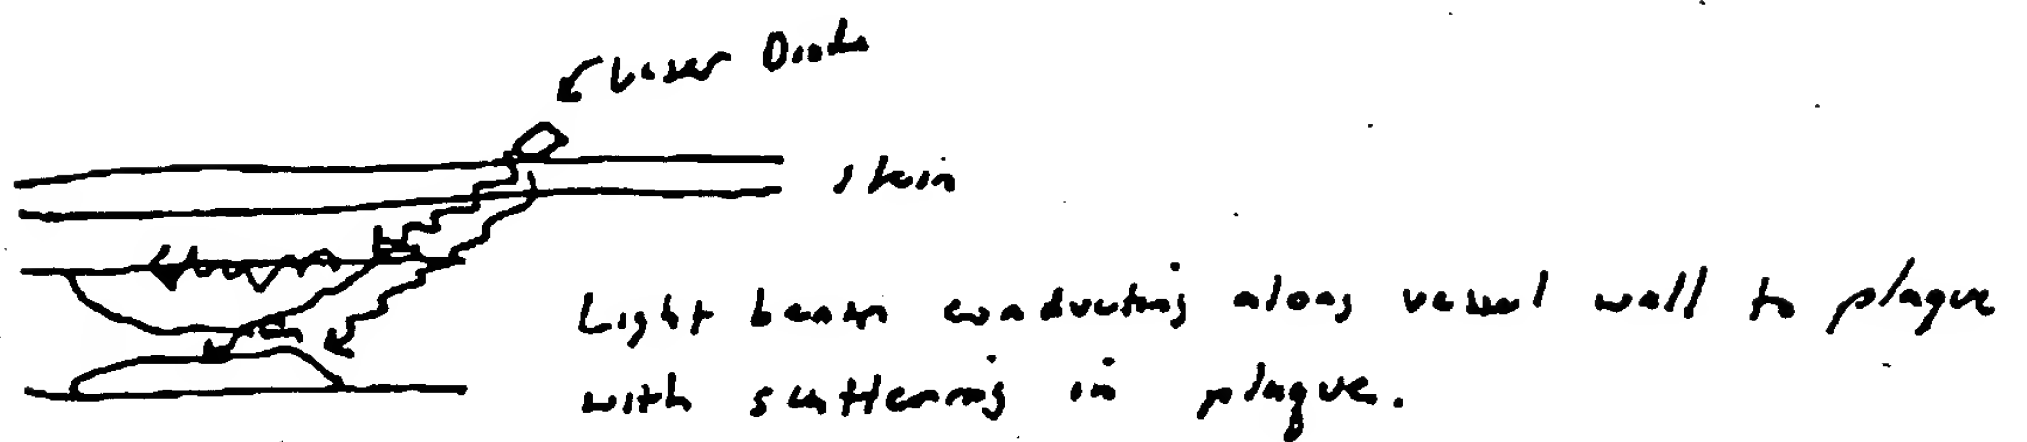 Laser Diode
skin
Light beam conducting along vessel wall to plaque
with scattering in plaque.